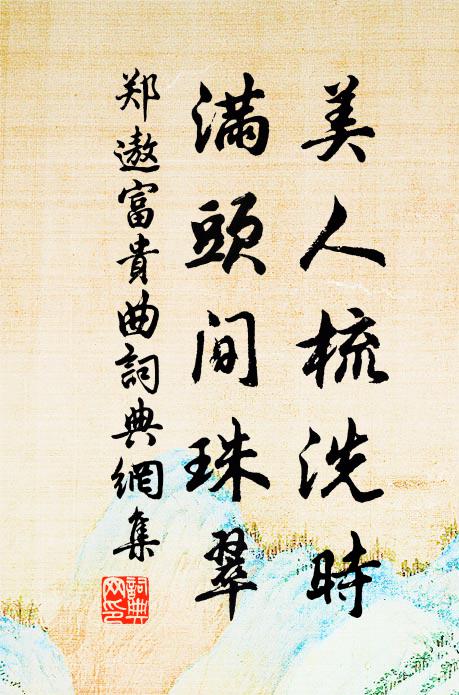 美人梳洗時
滿頭間珠翠
郑遨富貴曲詞典網集
詞典